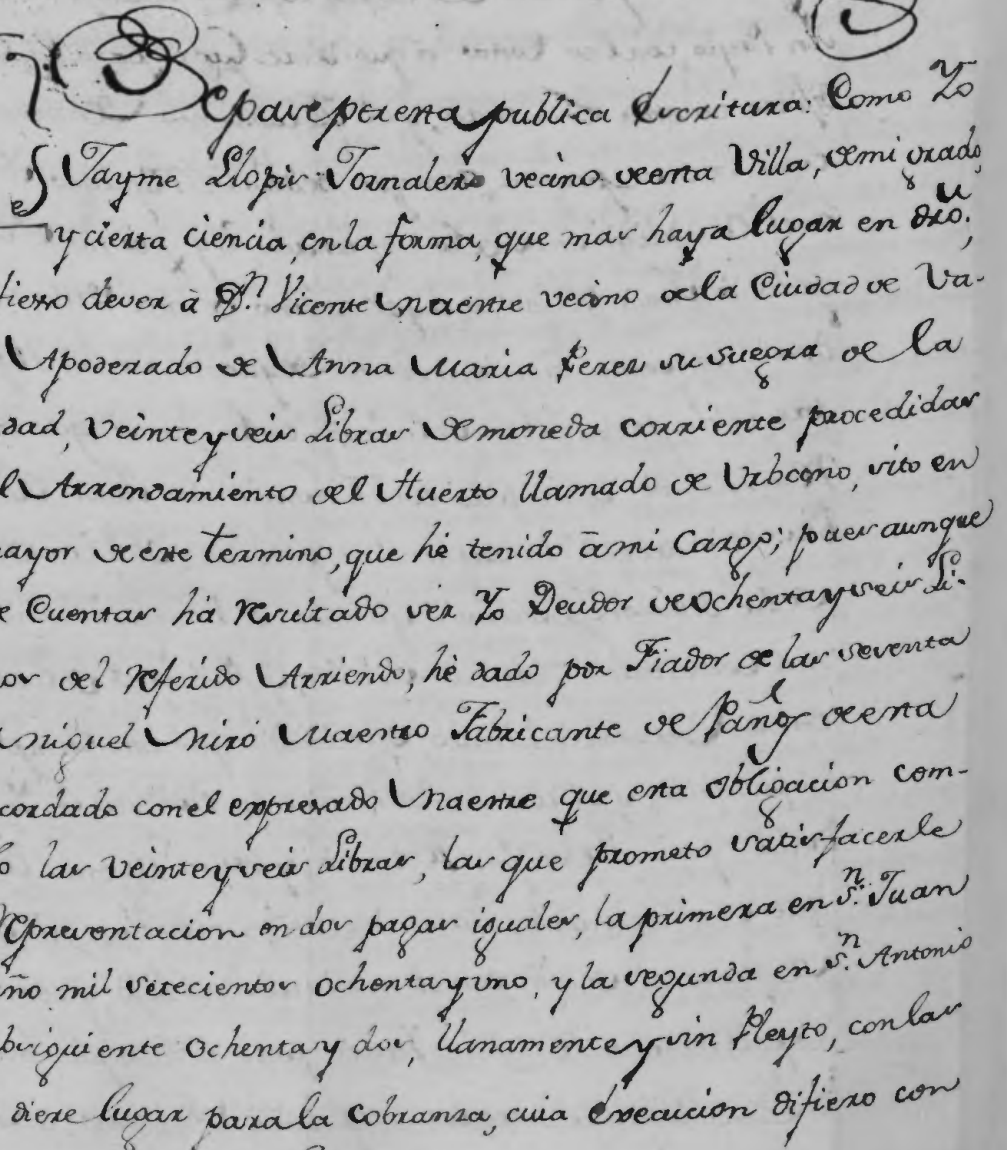 Sepase por esta publica Escritura: Como Yo
Jayme Llopis Jornalero vecino de esta Villa, de mi grado,
y cierta ciencia, en la forma, que mas haya lugar en dro.,
fieso dever à Dn. Vicente Maestre vecino de la Ciudad de Va-
Apoderado de Anna Maria Perez su suegra de la
dad, veinte y seis Libras de moneda corriente procedidas
l Arrendamiento del Huerto llamado de Urbcono, sito en
mayor de este termino, que hè tenido à mi Cargo; pues aunque
e Cuentas hà resultado ser Yo Deudor de ochenta y seis Li-
os del referido Arriendo, hè dado por Fiador de las sesenta
Miguel Miró Maestro Fabricante de Paños de esta
cordado con el expresado Maestre que esta obligacion com-
o las veinte y seis Libras, las que prometo satisfacerle
representacion en dos pagas iguales, la primera en Sn. Juan
ño mil setecientos ochenta y uno, y la segunda en Sn. Antonio
bsiguiente ochenta y dos, llanamente y sin Pleyto, con las
diere lugar para la cobranza, cuia execucion difiero con